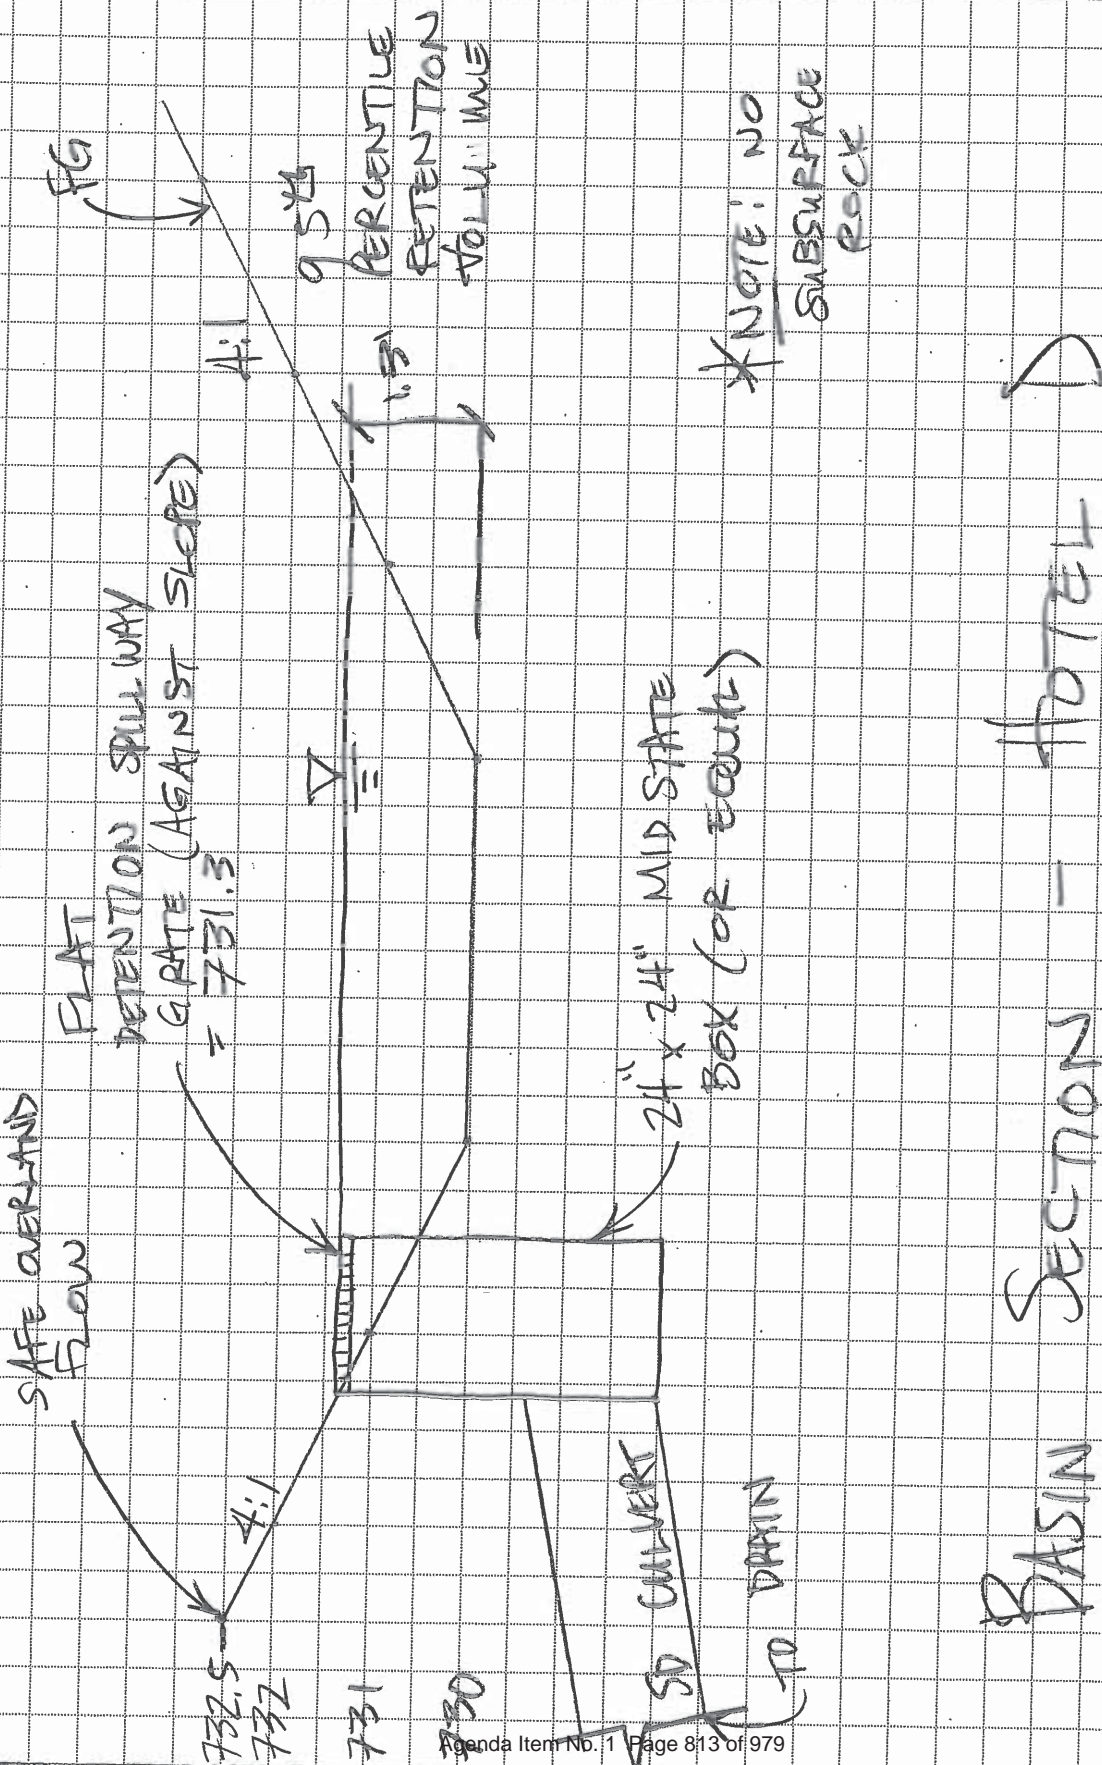 SAFE OVERLAND
FLOW
FLAT
DETENTION SPILLWAY
GRATE (AGAINST SLOPE)
= 731.3
FG
4:1
4:1
95th
PERCENTILE
RETENTION
VOLUME
1.3'
732.5
732
731
730
24" x 24" MID STATE
BOX (OR EQUAL)
*NOTE: NO
SUBSURFACE
ROCK
SD CULVERT
TO DRAIN
BASIN SECTION - HOTEL D
Agenda Item No. 1 Page 813 of 979